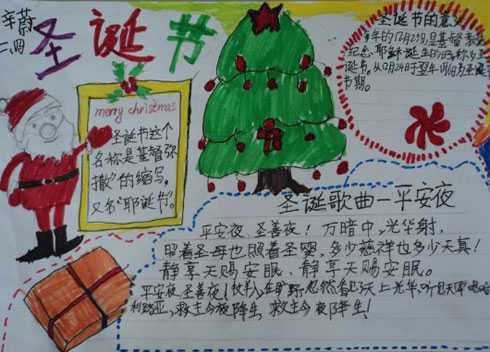 辛蔚
二、四
圣诞节
merry christmas
圣诞节这个
名称是基督弥
撒"的缩写。
又名"耶诞节"。
圣诞节的意义
年的12月25日,是基督教
纪念耶稣诞生的日
诞节。从12月24日于翌年1月6日为圣诞
节期。
圣诞歌曲—平安夜
平安夜,圣善夜!万暗中,光华射,
照着圣母也照着圣婴,多少慈祥也多少天真!
静享天赐安眠、静享天赐安眠。
平安夜,圣善夜!牧羊人,在旷野,忽然看见了天上光华,听见天军唱哈
利路亚,救主今夜降生,救主今夜降生!